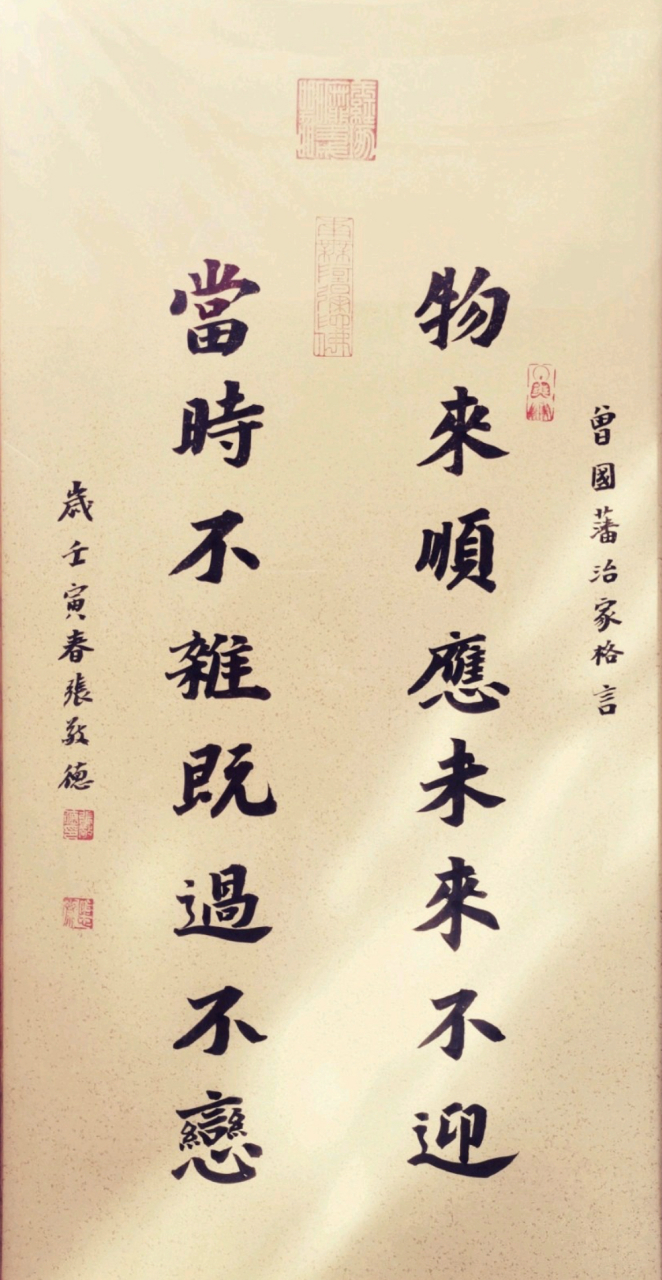 曾國藩治家格言
物來順應未來不迎
當時不雜既過不戀
歲壬寅春張敬德